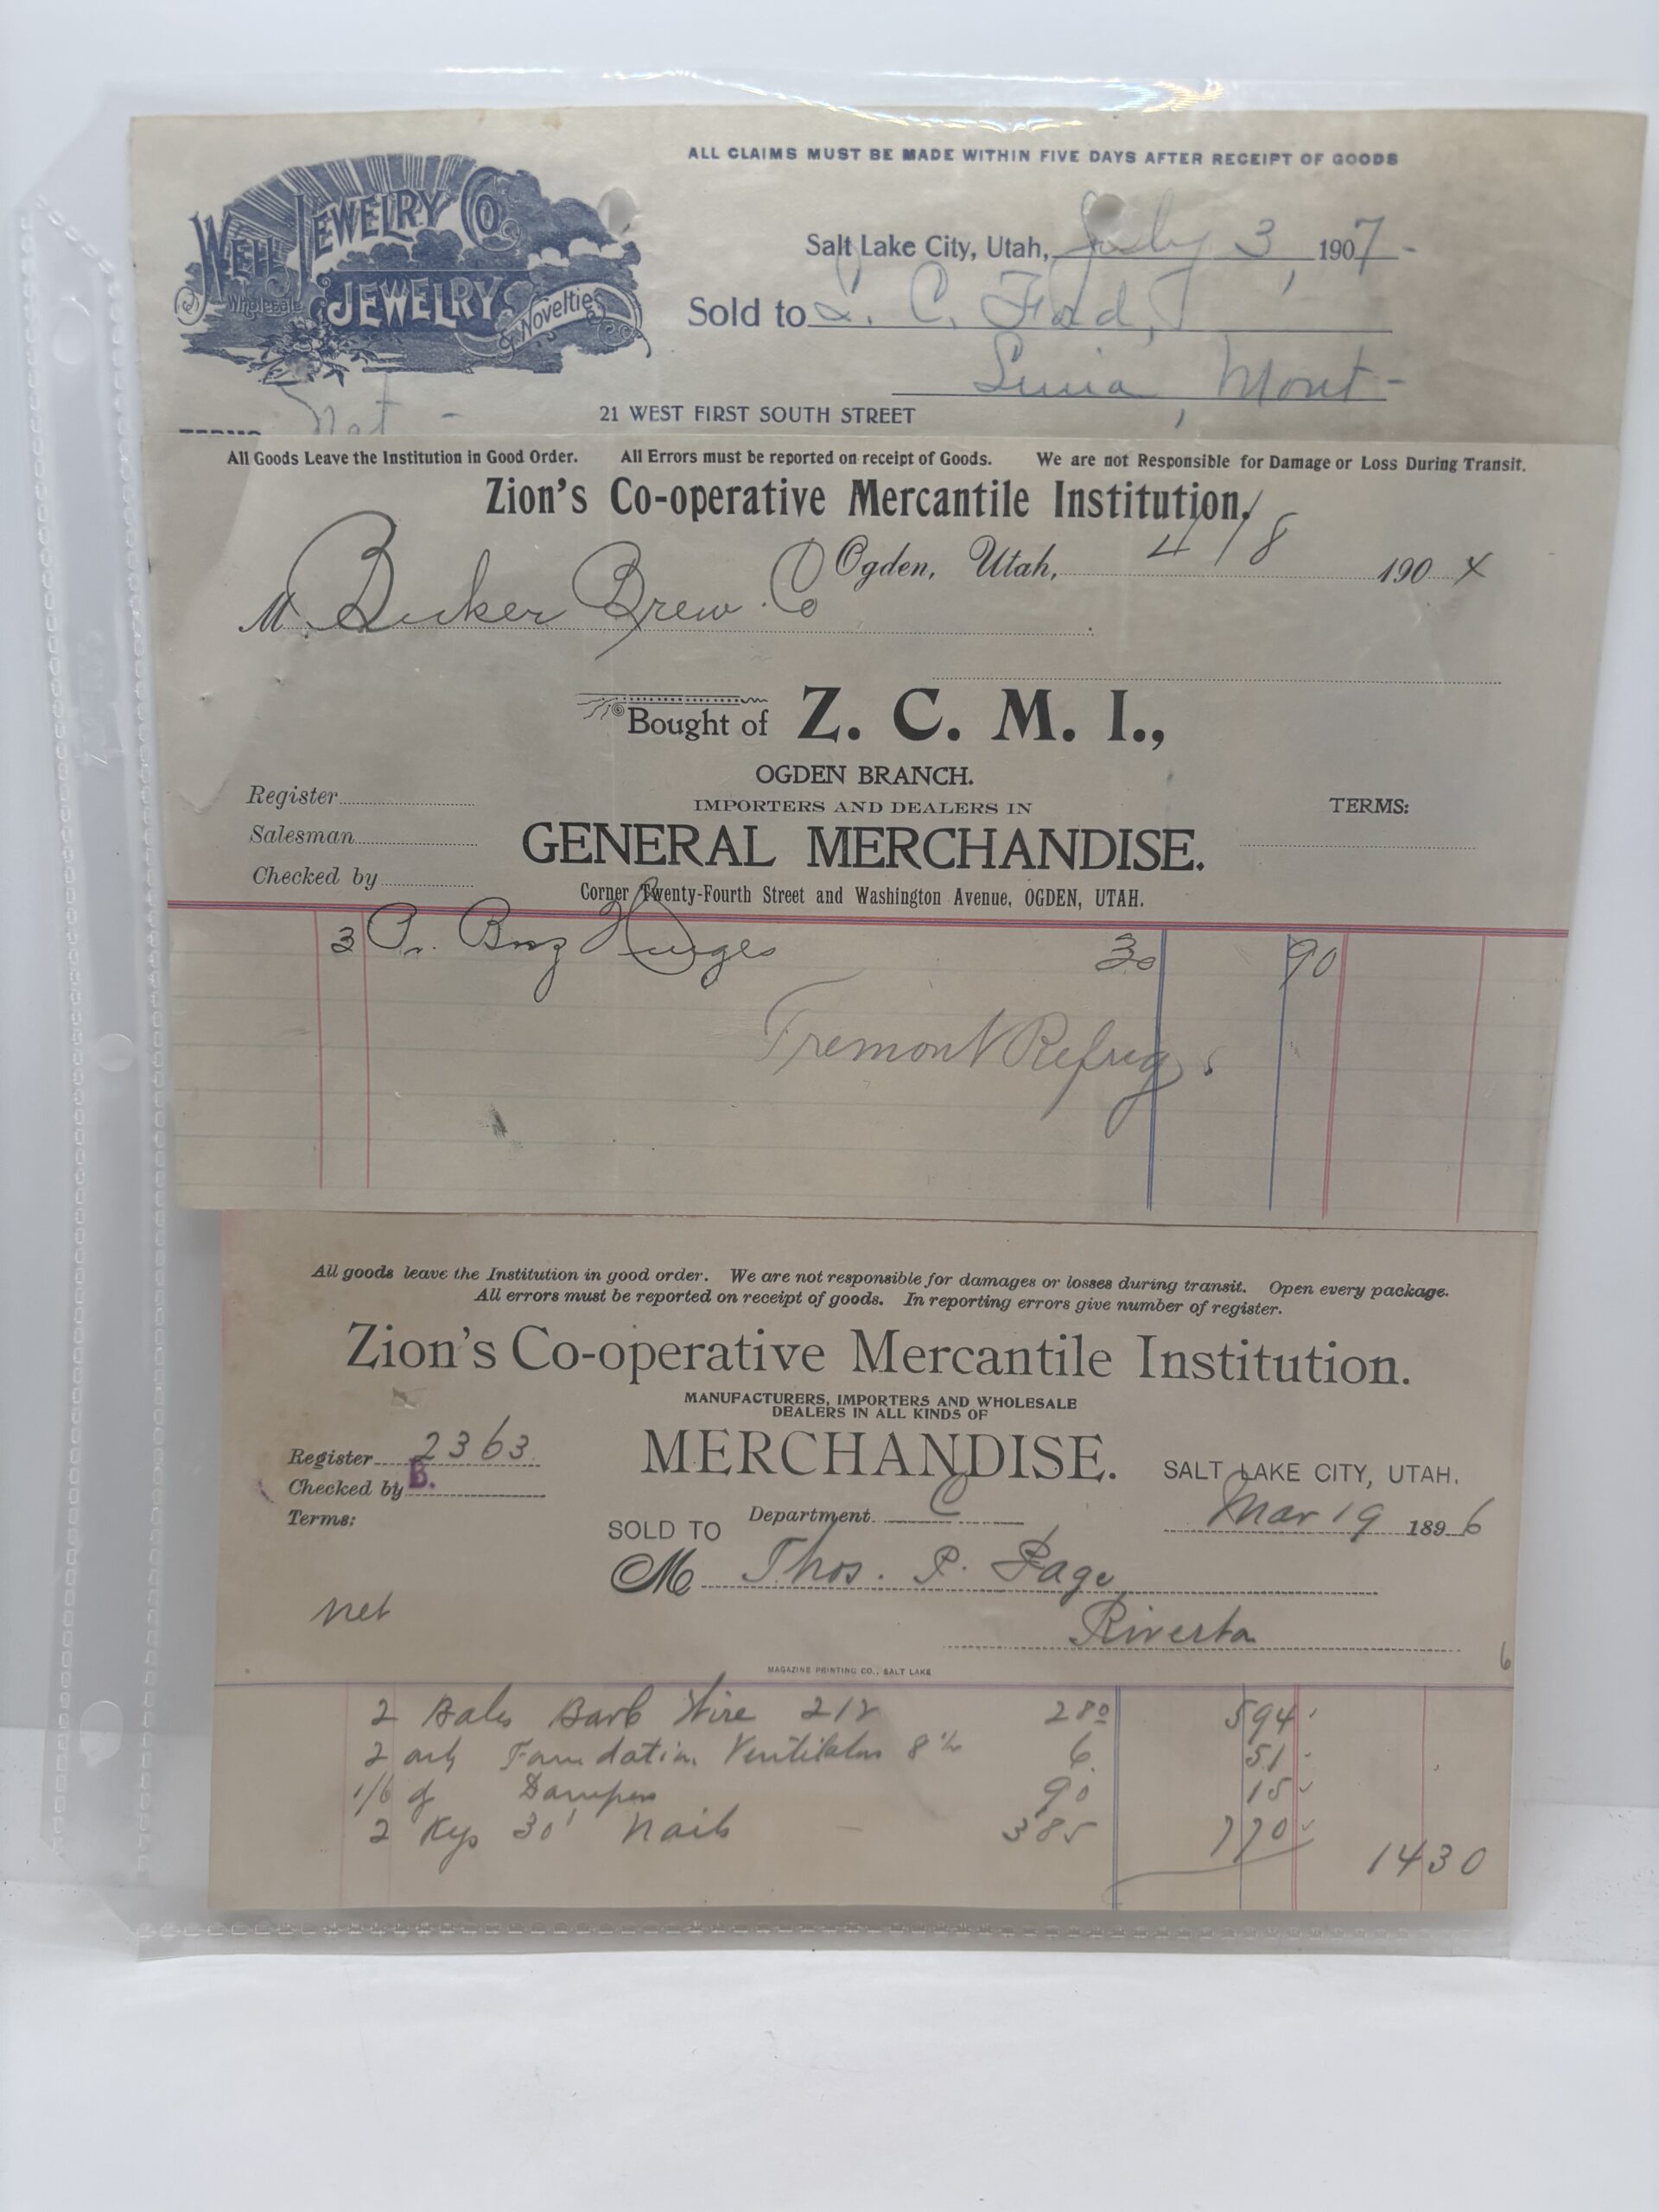 ALL CLAIMS MUST BE MADE WITHIN FIVE DAYS AFTER RECEIPT OF GOODS
WEIL JEWELRY CO.
Wholesale JEWELRY & Novelties
Salt Lake City, Utah, July 3 1907-
Sold to L. C. Ford,
Lima, Mont-
Net -
21 WEST FIRST SOUTH STREET
TERMS
All Goods Leave the Institution in Good Order. All Errors must be reported on receipt of Goods. We are not Responsible for Damage or Loss During Transit.
Zion's Co-operative Mercantile Institution.
Ogden, Utah, 4/8 1904
M Becker Brew. Co
Bought of Z. C. M. I.,
OGDEN BRANCH.
Register
IMPORTERS AND DEALERS IN
TERMS:
Salesman
GENERAL MERCHANDISE.
Checked by
Corner Twenty-Fourth Street and Washington Avenue, OGDEN, UTAH.
3 Pr. Brnz Hinges 30 90
Tremont Refrig
All goods leave the Institution in good order. We are not responsible for damages or losses during transit. Open every package.
All errors must be reported on receipt of goods. In reporting errors give number of register.
Zion's Co-operative Mercantile Institution.
MANUFACTURERS, IMPORTERS AND WHOLESALE
DEALERS IN ALL KINDS OF
Register 2363
MERCHANDISE. SALT LAKE CITY, UTAH.
Checked by B.
Terms:
Department C
Mar 19 1896
SOLD TO
M Thos. P. Page
net
Riverton
6
MAGAZINE PRINTING CO., SALT LAKE
2 Bales Barb Wire 212 280 594
2 only Foundation Ventilators 6 51
1/6 Dampers 90 15
2 Kgs 30' Nails - 385 770
1430